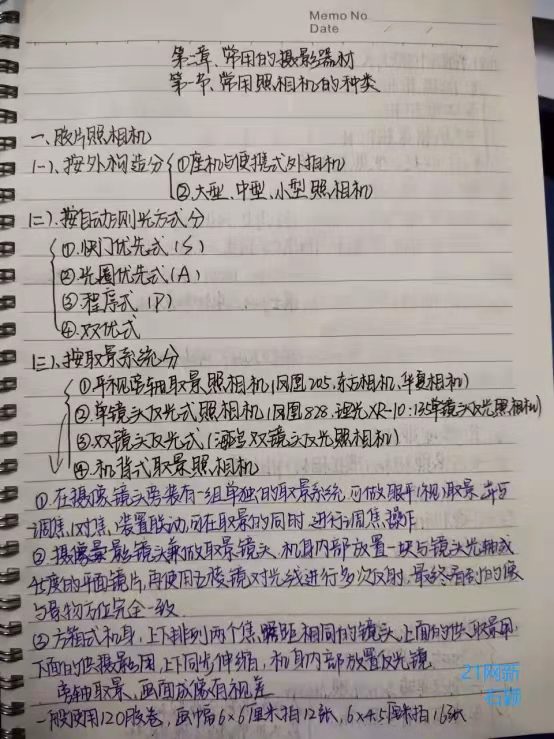 Memo No
Date
第二章、常用的摄影器材
第一节、常用照相机的种类
一、胶片照相机
(一)、按外构造分 ①座机与便携式外拍机
②大型、中型、小型照相机
(二)、按自动测光方式分
①.快门优先式(S)
②.光圈优先式(A)
③.程序式(P)
④.双优式
(三)、按取景系统分
①平视旁轴取景照相机(凤凰205,东方相机,华夏相机)
②.单镜头反光式照相机(凤凰828,理光XR-10:135单镜头反光照相机)
③.双镜头反光式(海鸥双镜头反光照相机)
④.机背式取景照相机
①在摄像镜头旁装有一组单独的取景系统,可做眼平(视)取景,并与
调焦(对焦)装置联动,可在取景的同时,进行调焦操作.
②.摄影镜头兼做取景镜头,机身内部放置一块与镜头光轴成
45度的平面镜片,再使用五棱镜对光线进行多次反射,最终看到的像
与景物方位完全一致.
③方箱式机身,上下排列两个焦距相同的镜头,上面的供取景用,
下面的供摄影用,上下同步伸缩,机身内部放置反光镜
旁轴取景,画面放像有视差
一般使用120胶卷,画幅6×6厘米拍12张,6×4.5厘米拍16张
21网新
右颖